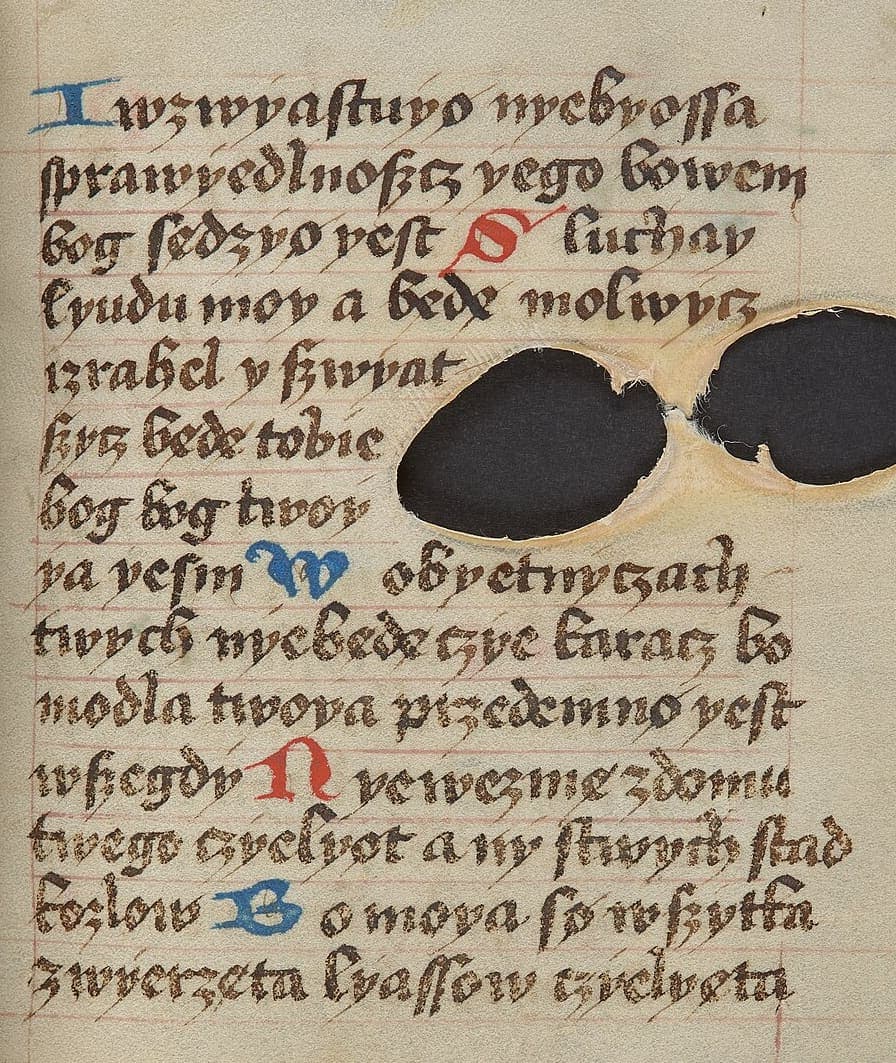 I wzwyastuyo nyebyossa
sprawyedlnoßcz yego bowem
bog sedzyo yest S luchay
lyudu moy a bede molwycz
izrahel y ßwyat
ßycz bede tobie
bog bog twoy
ya yesm W obyetnyczach
twych nyebede czye karacz bo
modla twoya przedemno yest
wßegdy N yewezme zdomu
twego czyelyot any stwych stad
kozlow B o moya so wßytka
zwyerzeta lyassow czyelyeta